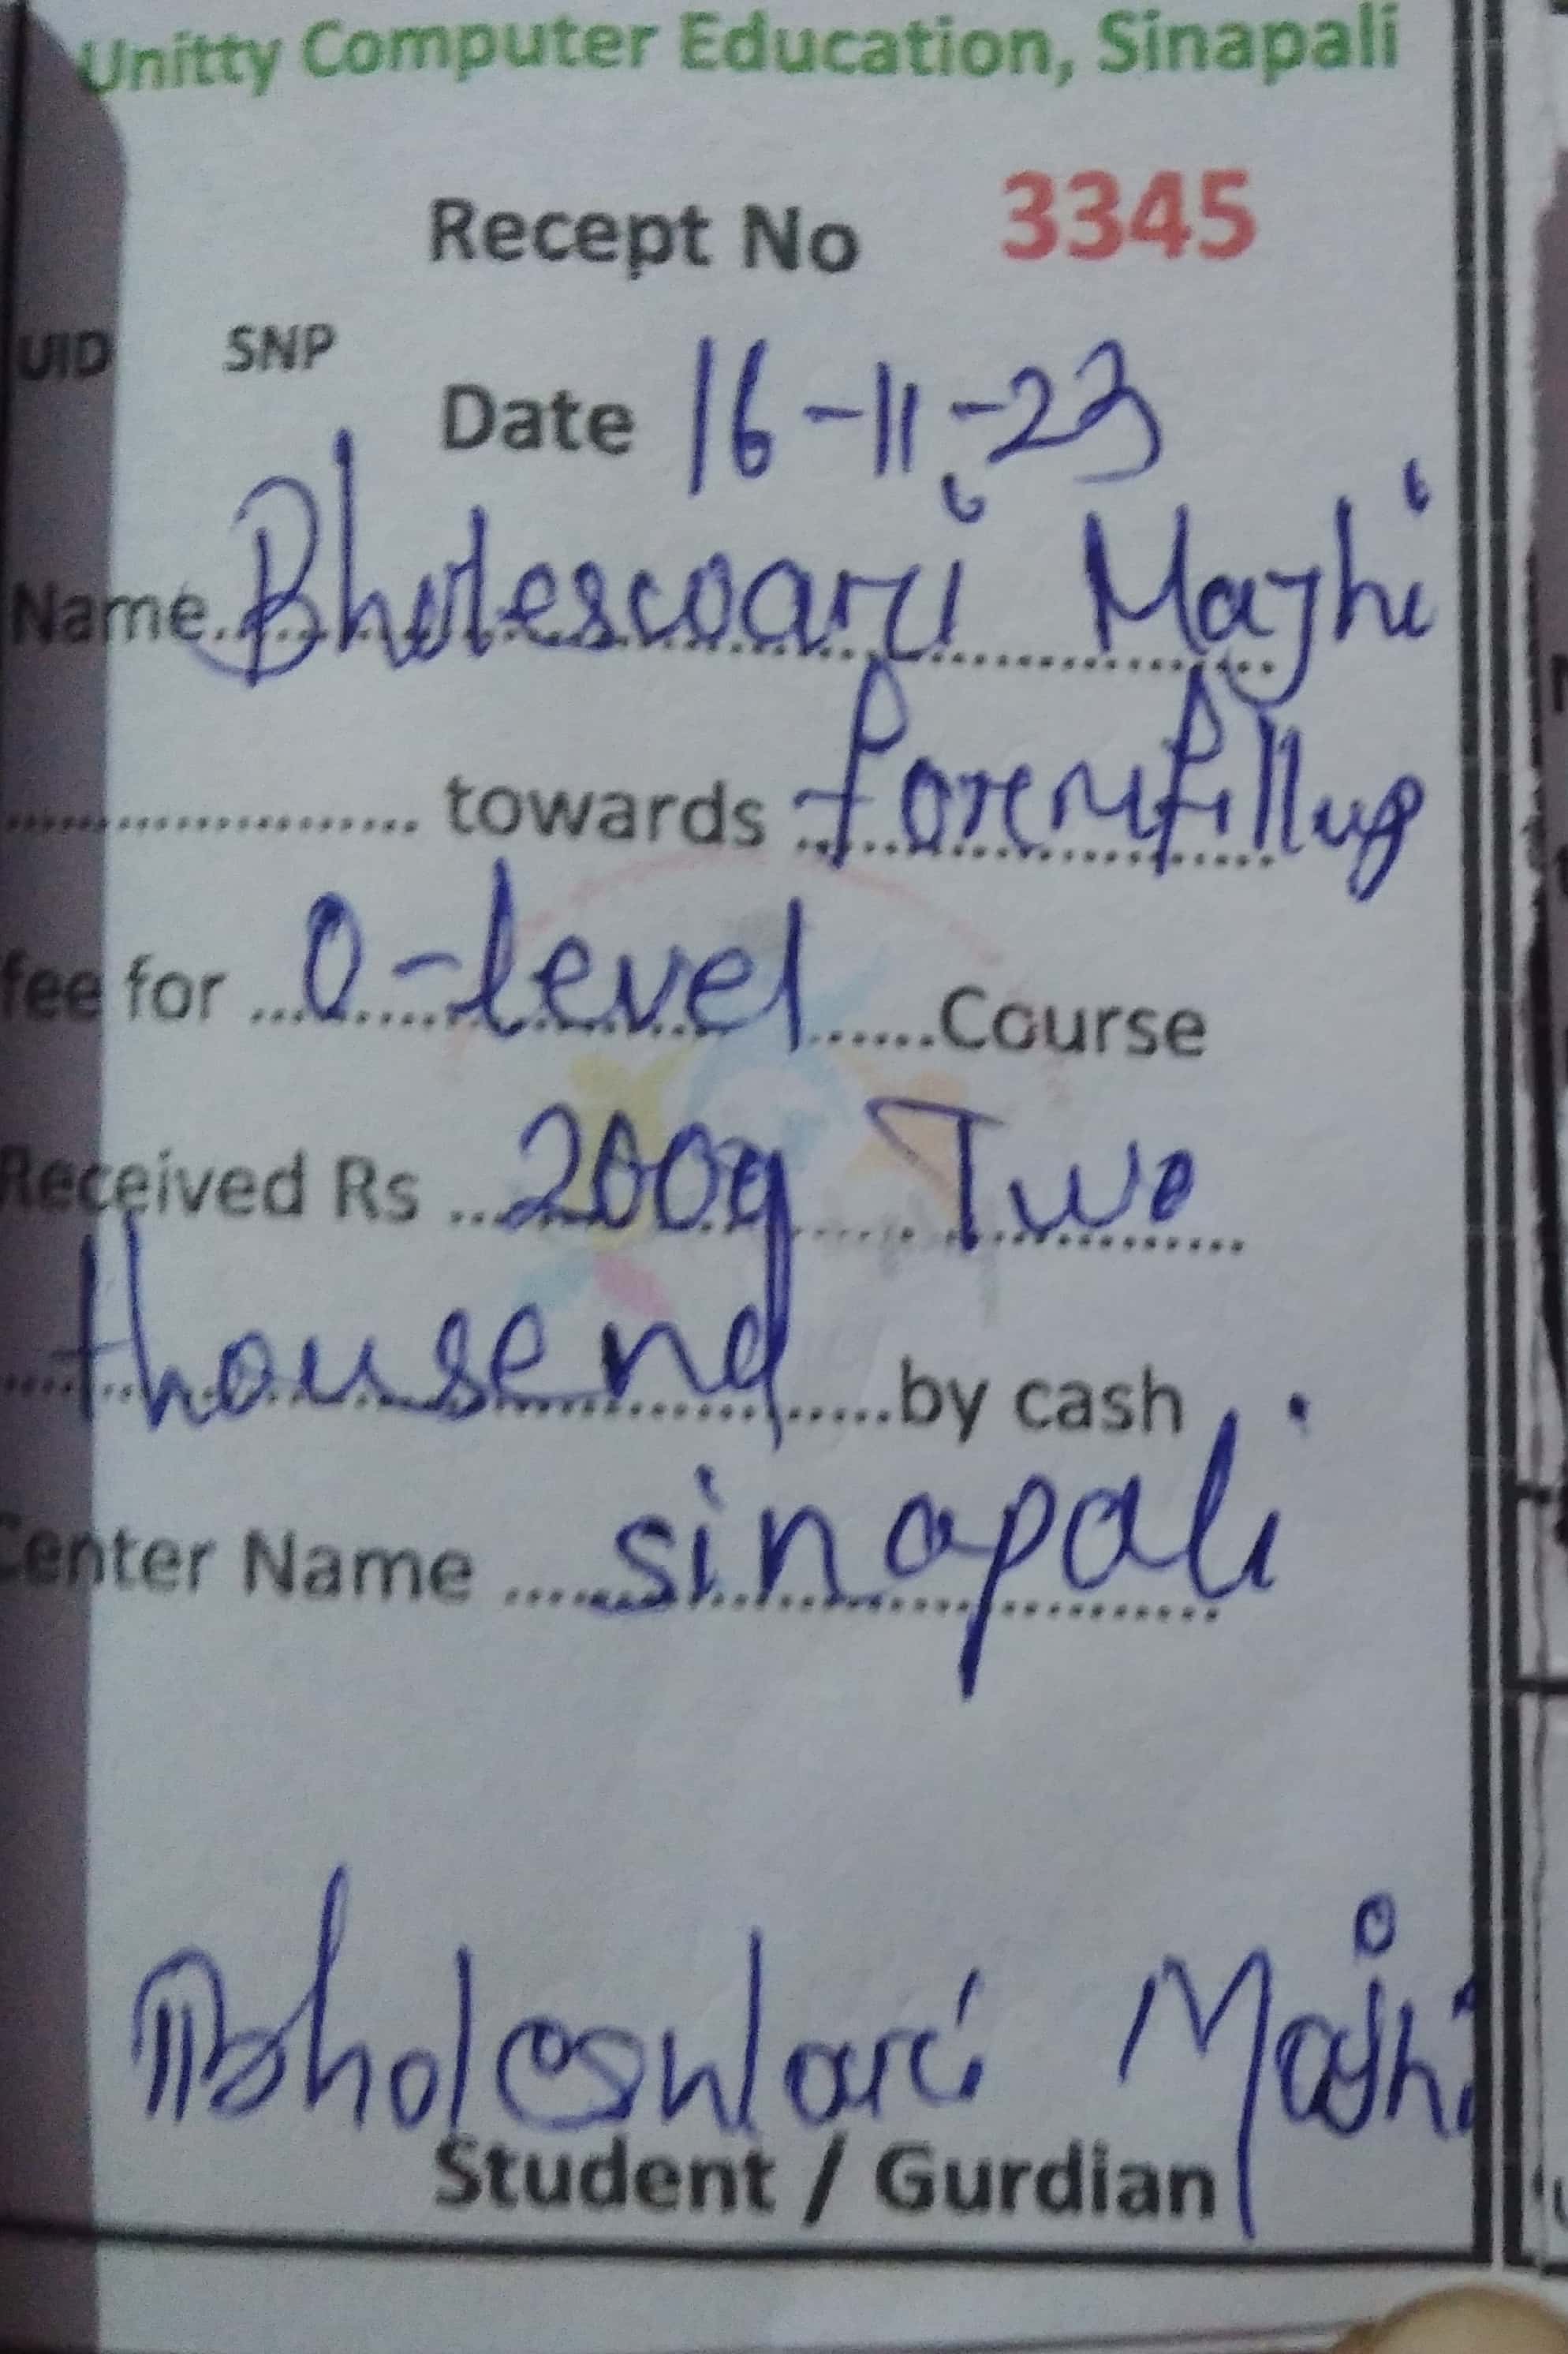 Unitty Computer Education, Sinapali
Recept No 3345
UID SNP
Date 16-11-23
Name Bholeswari Majhi
towards formfillup
fee for O-level Course
Received Rs 2000 Two
thousend by cash
Center Name sinapali
Bholeswari Majhi
Student / Gurdian